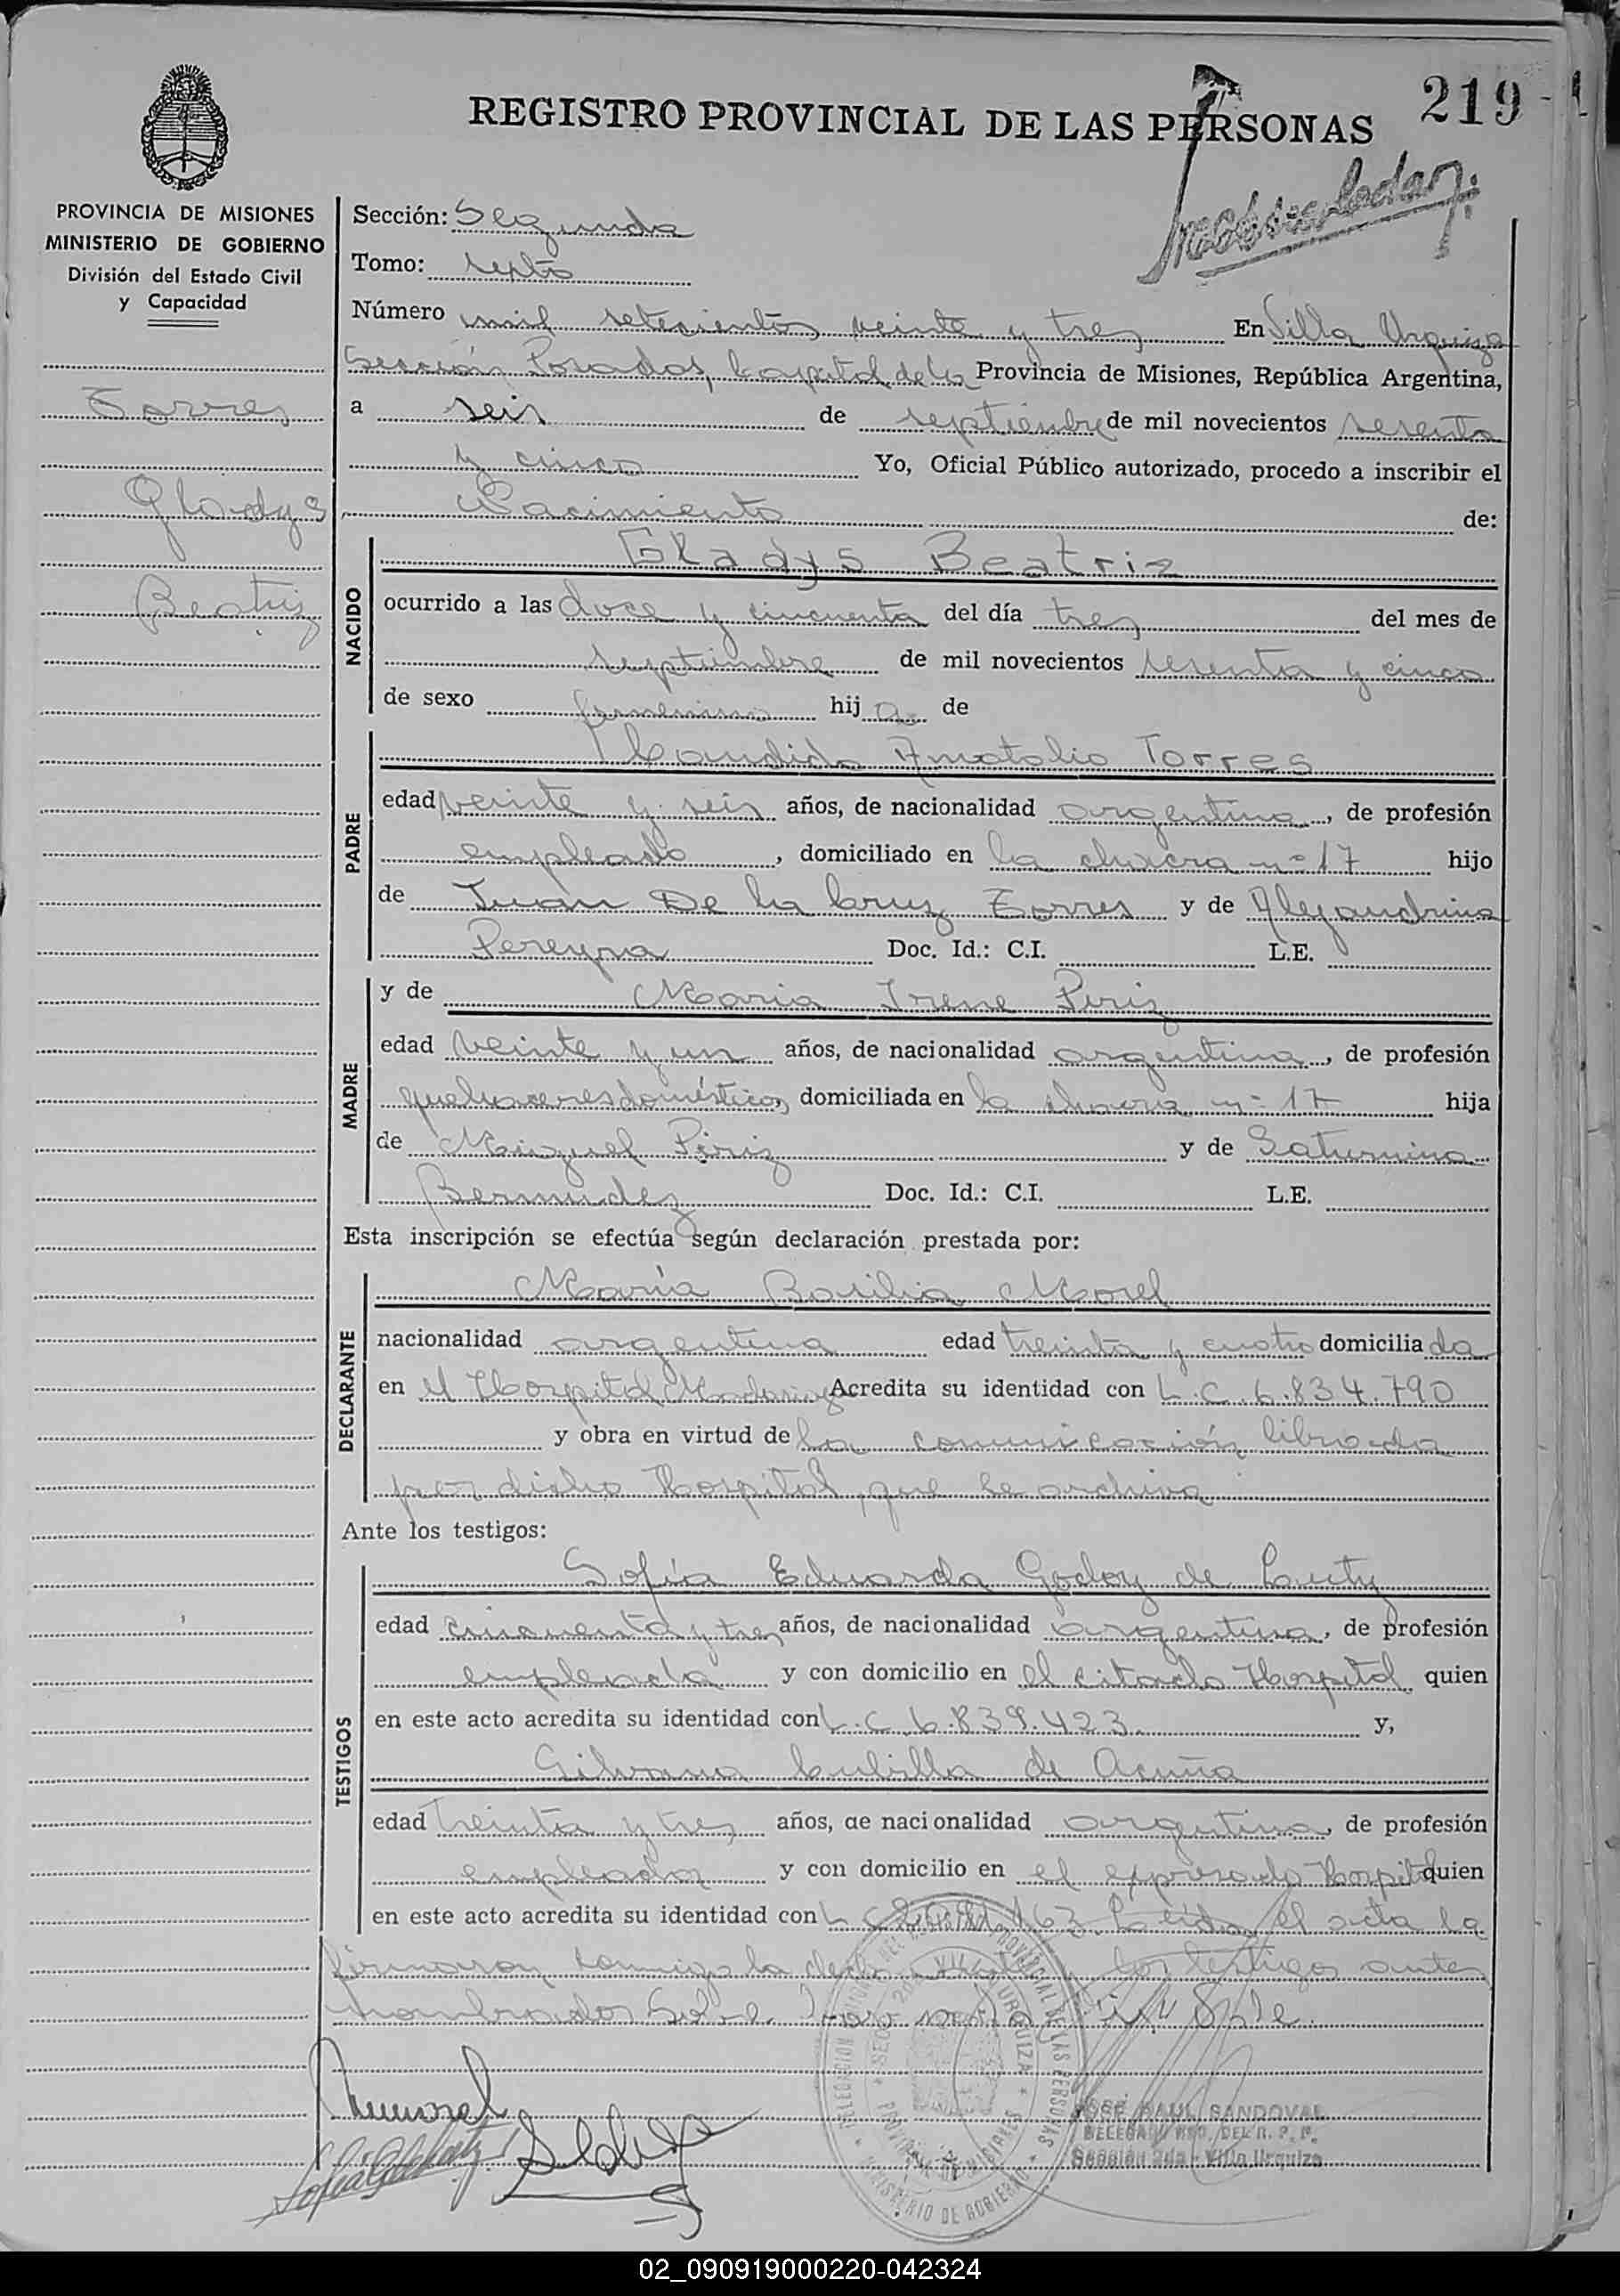 219
REGISTRO PROVINCIAL DE LAS PERSONAS
PROVINCIA DE MISIONES
MINISTERIO DE GOBIERNO
División del Estado Civil
y Capacidad
Torres
Gladys
Beatriz
Sección: Segunda
Tomo: septo
Número mil setecientos veinte y tres En Villa Urquiza
Sección Posadas, Capital de la Provincia de Misiones, República Argentina,
a seis de septiembre de mil novecientos sesenta
y cinco Yo, Oficial Público autorizado, procedo a inscribir el
Nacimiento de:
NACIDO
Gladys Beatriz
ocurrido a las doce y cincuenta del día tres del mes de
septiembre de mil novecientos sesenta y cinco
de sexo femenino hij a de
PADRE
Candido Anatolio Torres
edad veinte y seis años, de nacionalidad argentina, de profesión
empleado, domiciliado en la chacra nº 17 hijo
de Juan De la Cruz Torres y de Alejandrina
Pereyra Doc. Id.: C.I. L.E.
MADRE
y de Maria Irene Piriz
edad veinte y un años, de nacionalidad argentina, de profesión
quehaceres domésticos, domiciliada en la chacra nº 17 hija
de Miguel Píriz y de Saturnina
Bermudez Doc. Id.: C.I. L.E.
Esta inscripción se efectúa según declaración prestada por:
DECLARANTE
María Basilia Morel
nacionalidad argentina edad treinta y cuatro domicilia da
en el Hospital Madariaga Acredita su identidad con L.C 6.834.790
y obra en virtud de la comunicación librada
por dicho Hospital, que se archiva
Ante los testigos:
TESTIGOS
Sofía Eduarda Godoy de
edad cincuenta y tres años, de nacionalidad argentina, de profesión
empleada y con domicilio en el citado Hospital quien
en este acto acredita su identidad con L.C 6.839.423 y,
Silvana Cubilla de Acuña
edad treinta y tres años, de nacionalidad argentina, de profesión
empleada y con domicilio en el expresado Hospital quien
en este acto acredita su identidad con L.C Leída el acta la
firmaron conmigo la y los testigos antes
nombrados Sobre Vale.
JOSE RAUL SANDOVAL
DELEGADO DEL R. P. P.
Sección 2da - Villa Urquiza
MINISTERIO DE GOBIERNO
02_090919000220-042324